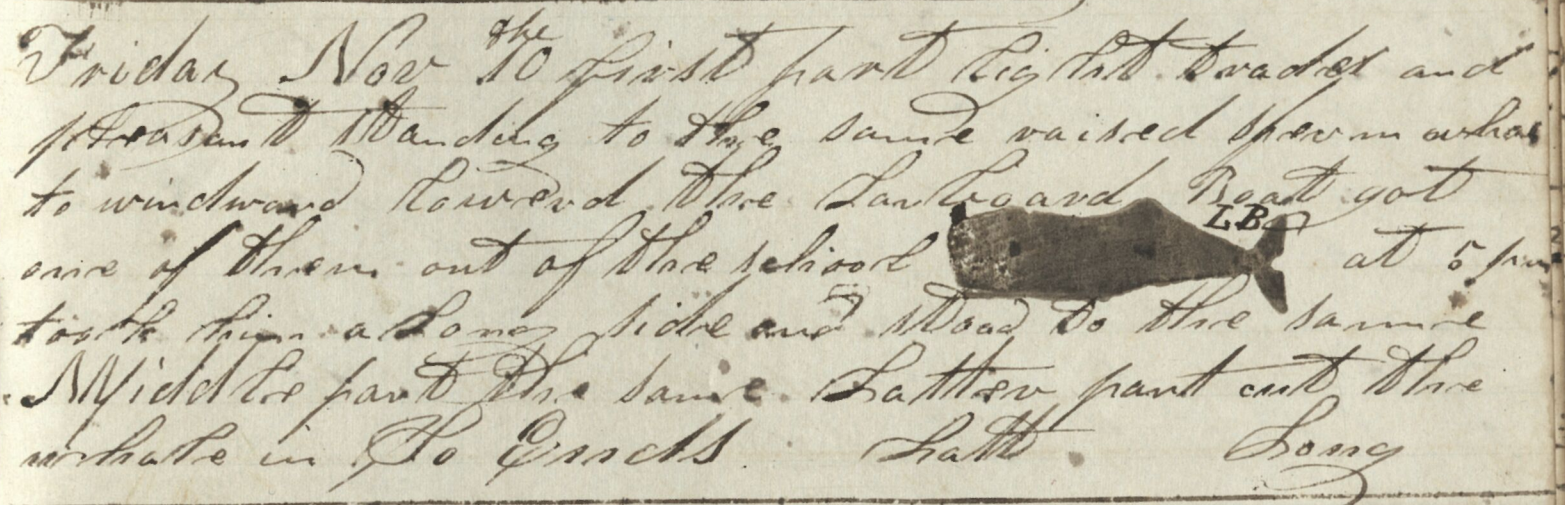 Friday Nov the 10 first part light trades and
pleasant standing to the same raised sperm whal
to windward lowerd the Larboard Boat got
one of them out of the school LB at 5 pm
took him a Long side and stood to the same
Middle part the same Latter part cut the
whale in So Ends Latt Long